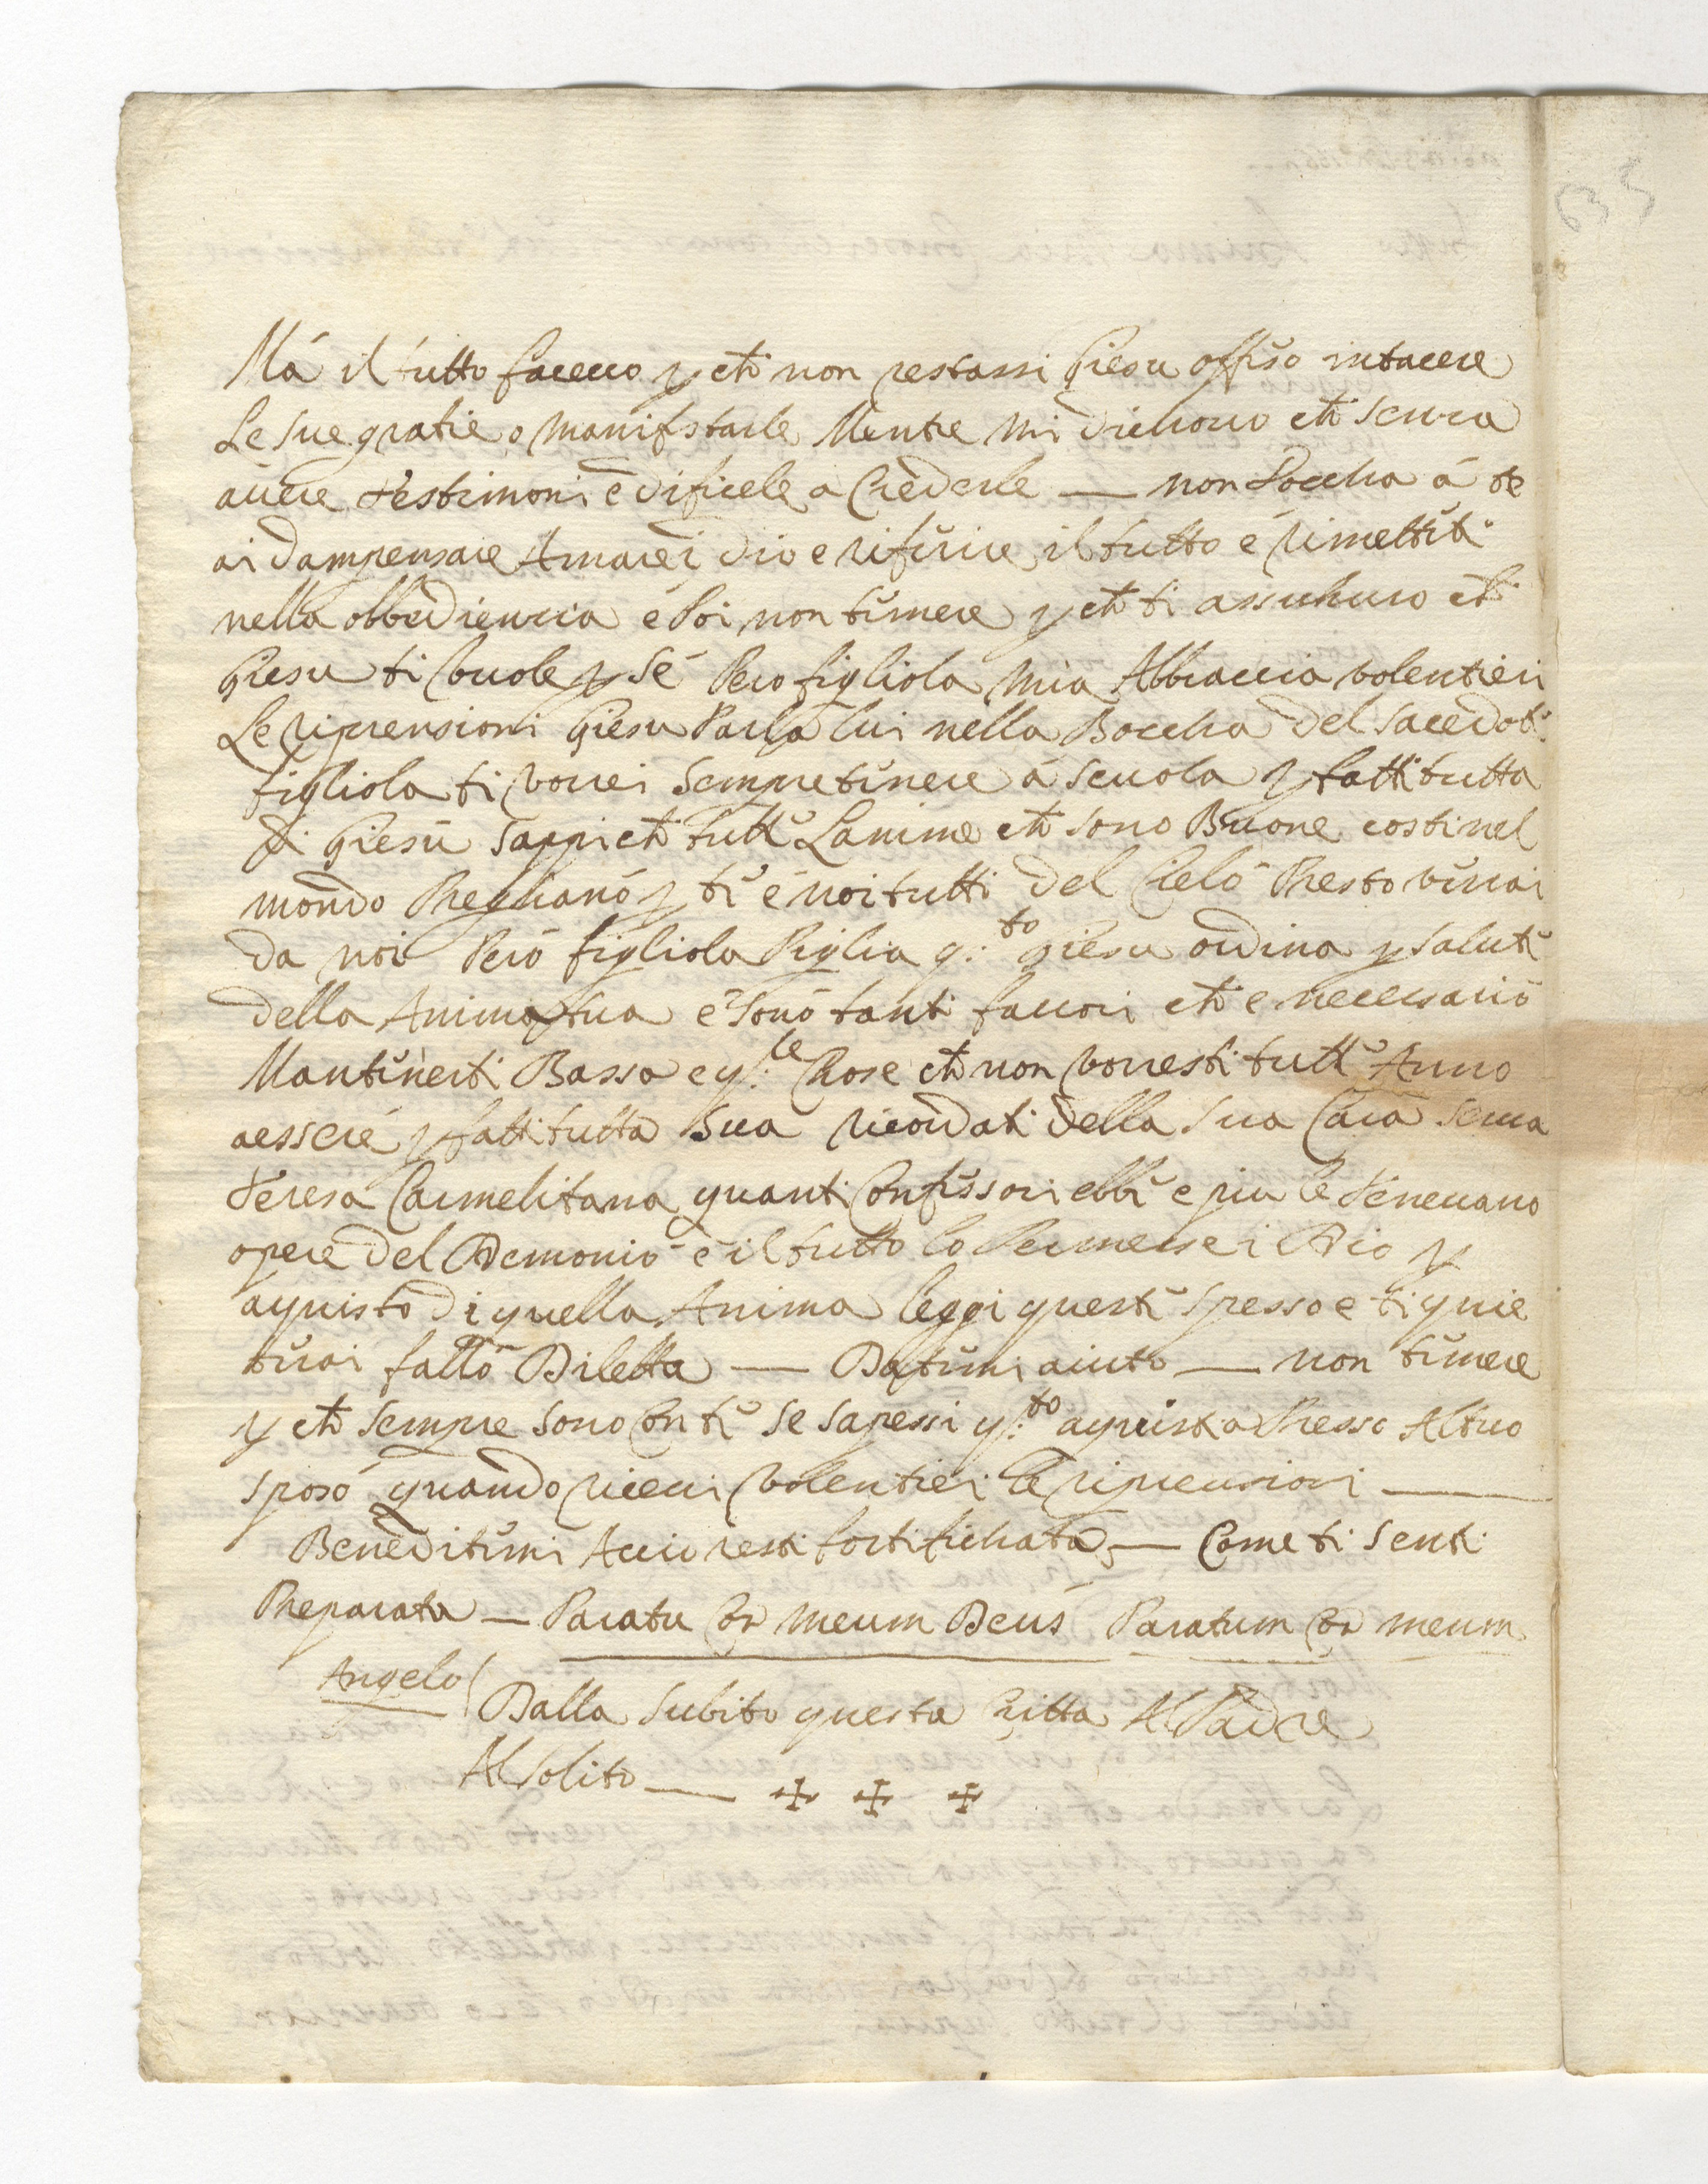 635
Má il tutto facevo p che non restassi Giesu offiso intacere
Le sue gratie o manifstarle Mentre mi dichono che senza
avere testimoni é dificele a Crederle — non toccha á te
ai dampensare Amarei dio e rifirire il tutto é rimettiti
nella obbedienzia é poi non timere p che ti assichuro che
Giesu ti vuole p Sé Pero figliola mia Abbraccia volentieri
Le riprensioni Giesu Parla lui nella Boccha del sacedoti
figliola ti vorrei sempre tinere á scuola p fatti tutta
di Giesu sappi che tutti Lanime che sono Buone costi nel
mondo Preghano p ti é noi tutti del Cielo Presto virrai
da noi Pero figliola Piglia q:to Giesu ordina p saluti
della Anima tua é sono tanti favori che e necessario
Mantinerti Bassa e q:le Chose che non vorresti tutti Anno
aessere p fatti tutta Sua ricordati della sua Cara serva
Teresa Carmelitana quanti Confissori ebbi e piu le tenevano
opere del Demonio é il tutto lo Permesse i Dio p
aquisto di quella Anima leggi questi spesso e ti quie
tirai fallo Diletta — Datimi aiuto — non timere
p che sempre sono Con ti se sapessi q:to aquista Presso Al tuo
sposo quando ricevi volentieri le riprensioni —
Beneditimi Accio resti fortifichata — Come ti senti
Preparata — Paratu Cor meum Deus Paratum Cor meum
Angelo ( Dalla subito questa Litta Al Padre
Al solito — ✠ ✠ ✠